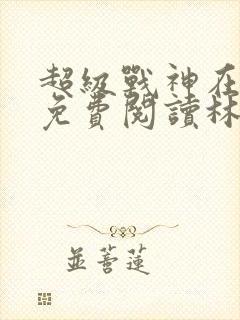 超級戰神在
免費閱讀林
並蒂蓮